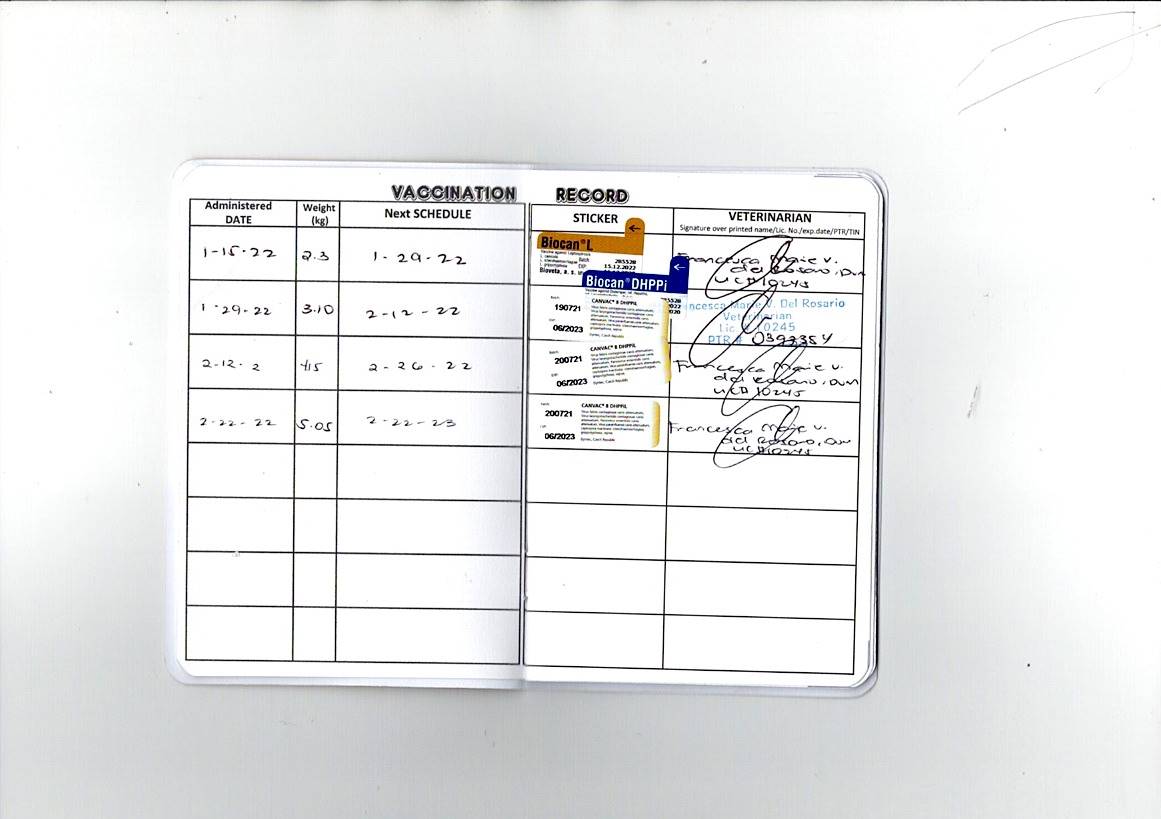 VACCINATION RECORD
Administered DATE
Weight (kg)
Next SCHEDULE
STICKER
VETERINARIAN
Signature over printed name/Lic. No./exp.date/PTR/TIN
1-15-22 2.3 1-29-22
Biocan® L
Batch 285528
EXP 15.12.2022
Bioveta, a. s.
Biocan® DHPPi
Francesca Marie V.
del Rosario, DVM
Lic# 10245
1-29-22 3.10 2-12-22
190721
06/2023
CANVAC® 8 DHPPiL
Dyntec, Czech Republic
ncesca Marie V. Del Rosario
Veterinarian
Lic. # 10245
PTR # 0392354
2-12-2 4.15 2-26-22
200721
06/2023
CANVAC® 8 DHPPiL
Dyntec, Czech Republic
Francesca Marie V.
del Rosario, DVM
Lic# 10245
2-22-22 5.05 2-22-23
200721
06/2023
CANVAC® 8 DHPPiL
Dyntec, Czech Republic
Francesca Marie V.
del Rosario, DVM
Lic# 10245